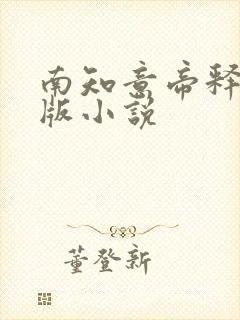 南知意帝释
版小説
董登新